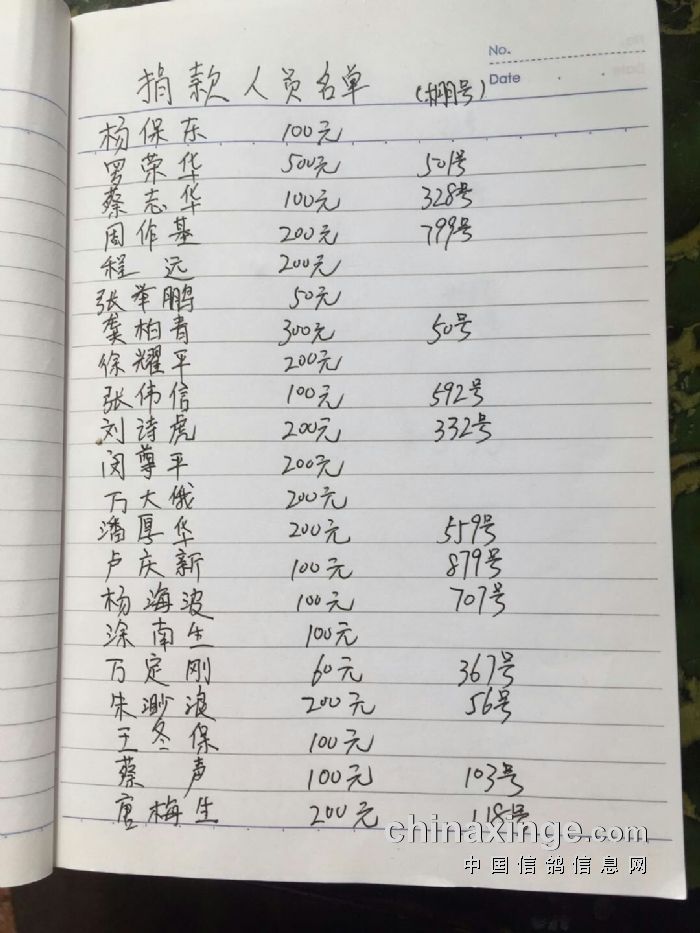 No.
Date
捐款人员名单 (棚号)
杨保东 100元
罗荣华 500元 501号
蔡志华 100元 328号
周作基 200元 799号
程远 200元
张军鹏 50元
龚柏青 300元 50号
徐耀平 200元
张伟信 100元 592号
刘诗虎 200元 332号
闵尊平 200元
万大俄 200元
潘厚华 200元 559号
卢庆新 100元 879号
杨海波 100元 707号
涂南生 100元
万定刚 60元 367号
朱渺浪 200元 56号
王冬保 100元
蔡声 100元 103号
唐梅生 200元 118号
chinaxinge.com
中国信鸽信息网